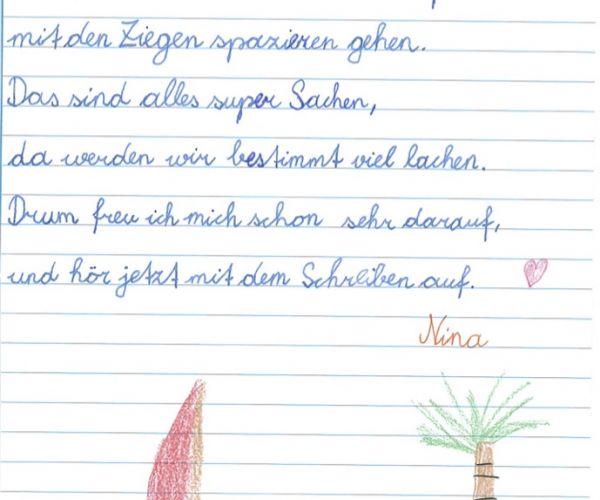 mit den Ziegen spazieren gehen.
Das sind alles super Sachen,
da werden wir bestimmt viel lachen.
Drum freu ich mich schon sehr darauf,
und hör jetzt mit dem Schreiben auf.
Nina